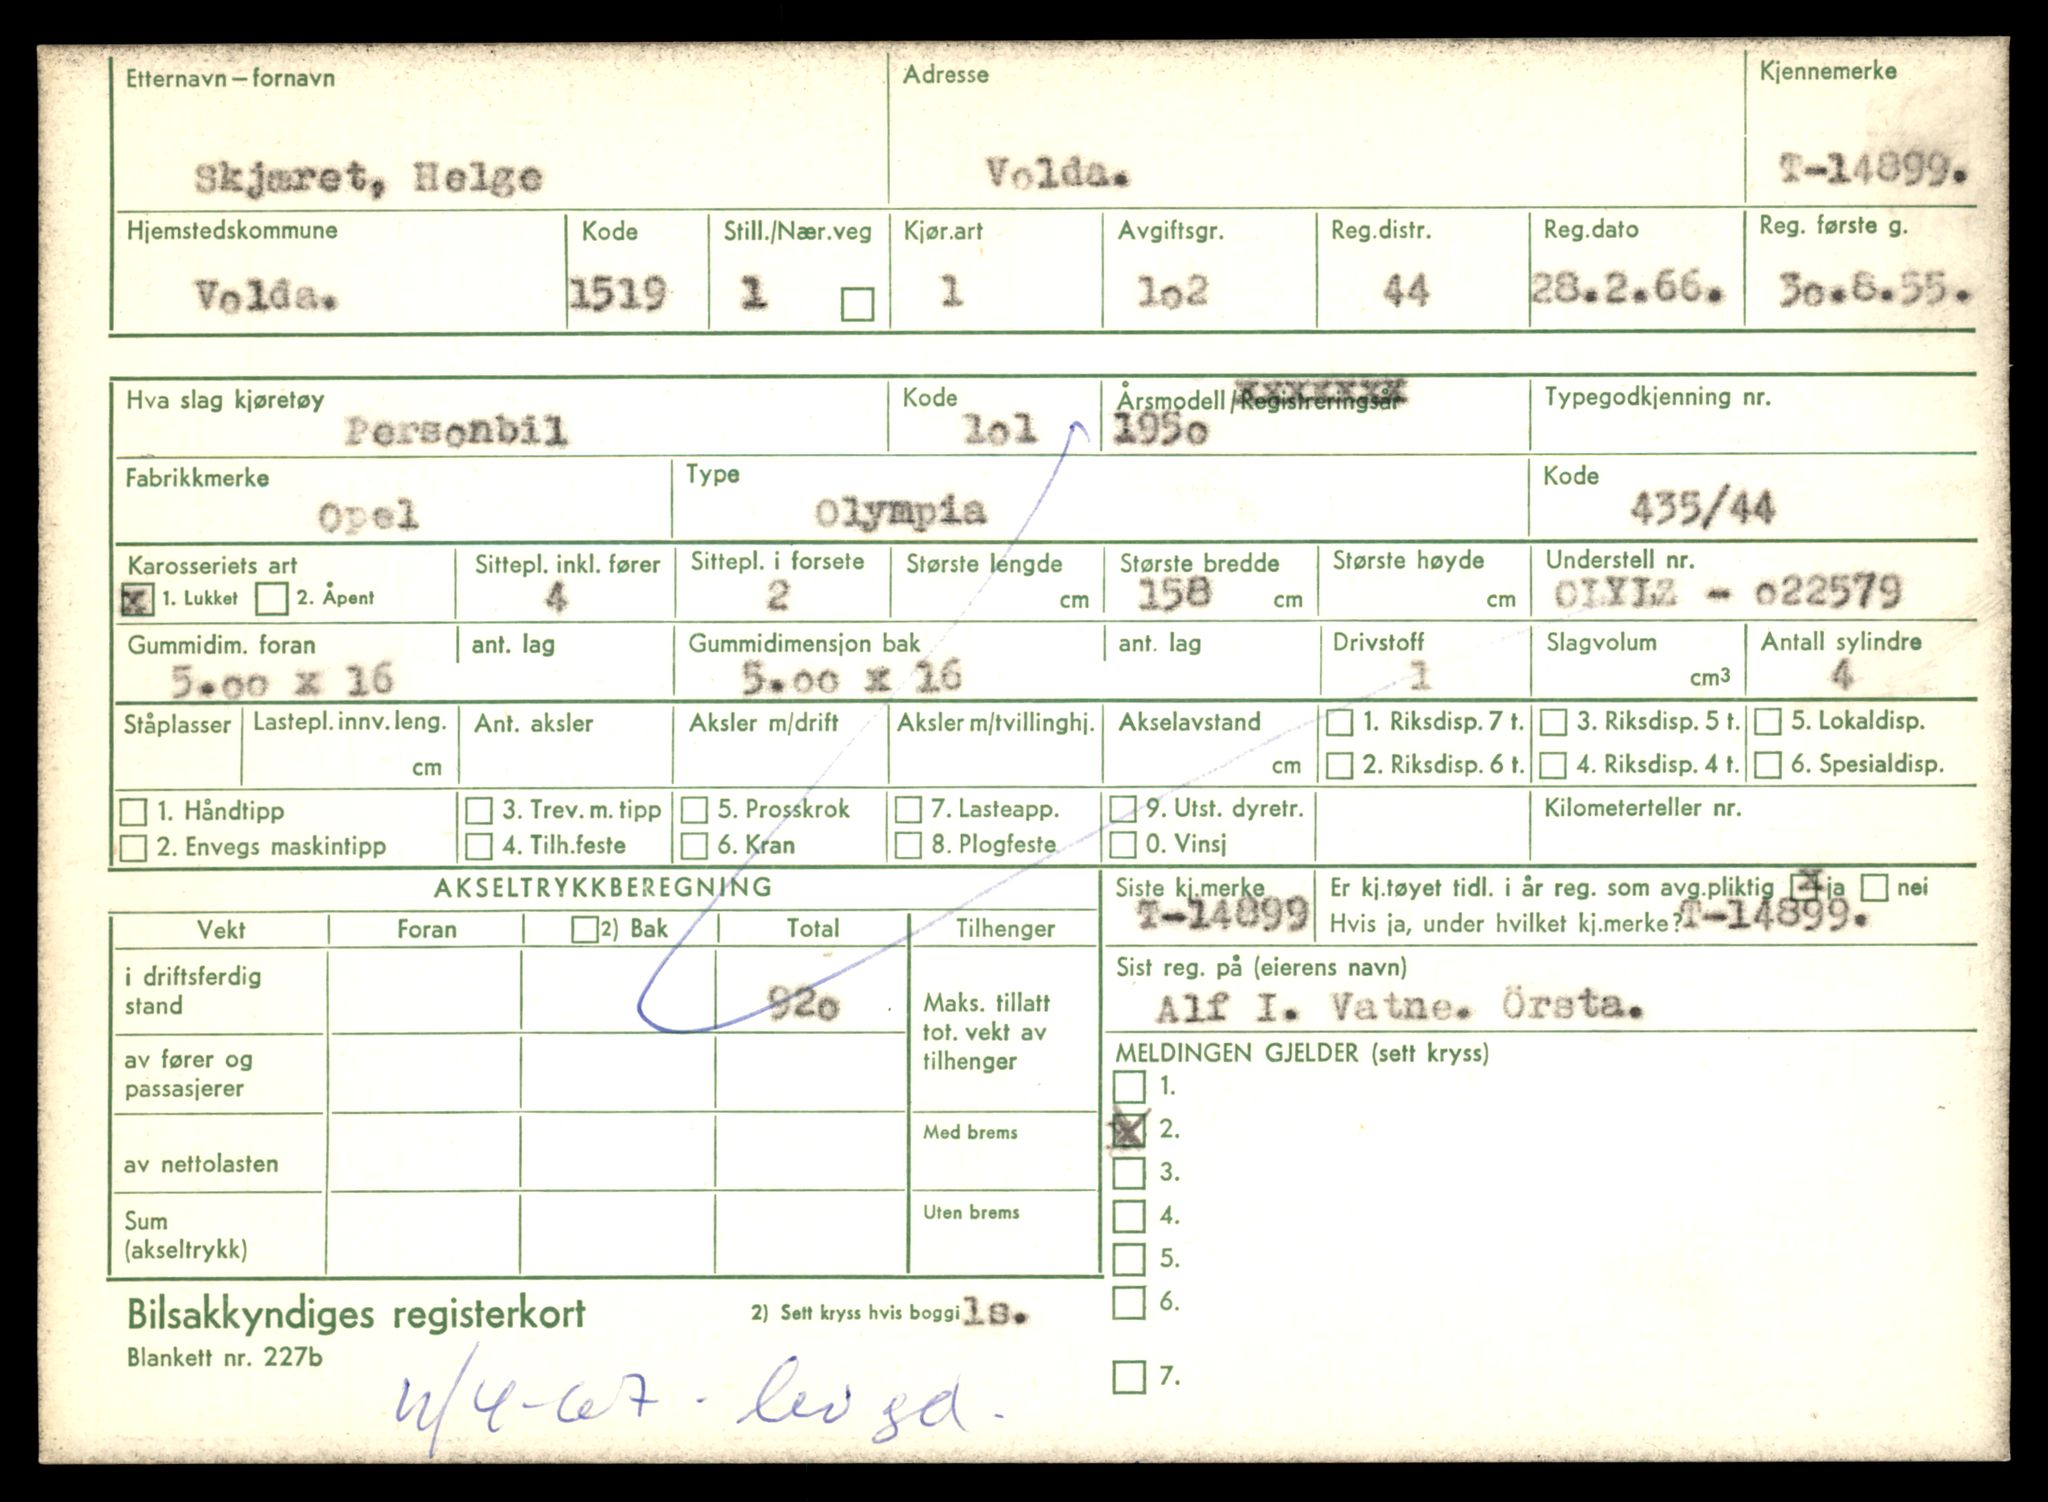 Etternavn – fornavn Adresse Kjennemerke
Skjæret, Helge Volda. T-14899.
Hjemstedskommune Kode Still./Nær.veg Kjør.art Avgiftsgr. Reg.distr. Reg.dato Reg. første g.
Volda. 1519 1 1 1o2 44 28.2.66. 3o.8.55.
Hva slag kjøretøy Kode Årsmodell/Registreringsår Typegodkjenning nr.
Personbil 1o1 195o
Fabrikkmerke Type Kode
Opel Olympia 435/44
Karosseriets art Sittepl. inkl. fører Sittepl. i forsete Største lengde Største bredde Største høyde Understell nr.
x 1. Lukket 2. Åpent 4 2 cm 158 cm cm OLYLZ - o22579
Gummidim. foran ant. lag Gummidimensjon bak ant. lag Drivstoff Slagvolum Antall sylindre
5.oo x 16 5.oo x 16 1 cm3 4
Ståplasser Lastepl. innv. leng. Ant. aksler Aksler m/drift Aksler m/tvillinghj. Akselavstand 1. Riksdisp. 7 t. 3. Riksdisp. 5 t. 5. Lokaldisp.
cm cm 2. Riksdisp. 6 t. 4. Riksdisp. 4 t. 6. Spesialdisp.
1. Håndtipp 3. Trev. m. tipp 5. Prosskrok 7. Lasteapp. 9. Utst. dyretr. Kilometerteller nr.
2. Envegs maskintipp 4. Tilh.feste 6. Kran 8. Plogfeste 0. Vinsj
AKSELTRYKKBEREGNING Siste kj.merke Er kj.tøyet tidl. i år reg. som avg.pliktig x ja nei
T-14899 Hvis ja, under hvilket kj.merke? T-14899.
Vekt Foran 2) Bak Total Tilhenger
Sist reg. på (eierens navn)
Alf I. Vatne. Örsta.
i driftsferdig
stand 92o
Maks. tillatt
tot. vekt av
tilhenger
av fører og
passasjerer
av nettolasten Med brems
Sum
(akseltrykk) Uten brems
MELDINGEN GJELDER (sett kryss)
1.
x 2.
3.
4.
5.
6.
7.
Bilsakkyndiges registerkort 2) Sett kryss hvis boggi ls.
Blankett nr. 227b
/4-67 -